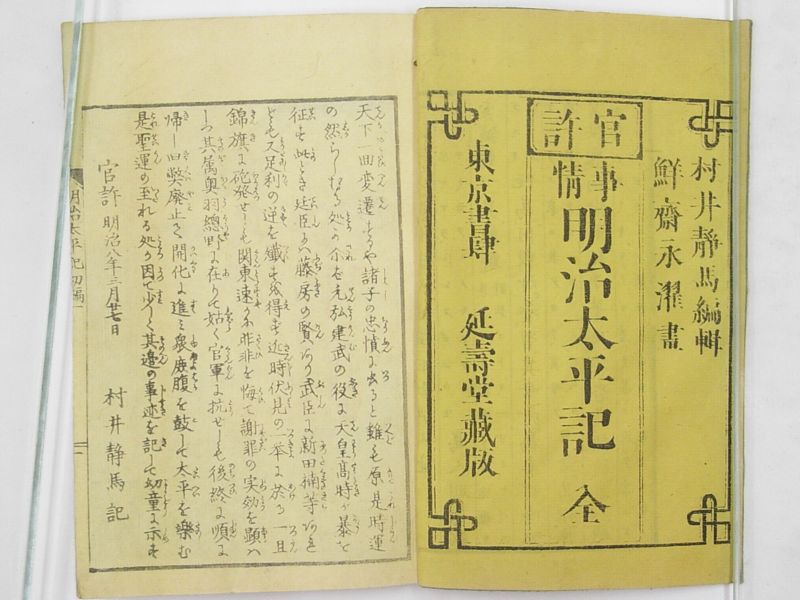 村井靜馬編輯
鮮齋永濯畫
官許
事情明治太平記 全
東京書肆 延壽堂藏版
天下一回変遷するや諸子の忠憤に出ると雖も原是時運
の然らしむる処か尓を元弘建武の役は天皇高時が暴を
征も此とき延臣には藤房の賢あり武臣に新田楠等ありき
ども又足利の逆を殱もを得ず近時伏見の一挙に於る一旦
錦旗に砲発せしも関東速かに非を悔て謝罪の実効を顕は
し其萬奥羽總野に在りて姑く官軍に抗せしも後終に順に
帰し旧弊廃止き開化に進ミ衆庶腹を鼓して太平を樂む
是聖運の至れる処か因て少しく其邉の事迹を記して幼童に示す
官許明治八年三月廿七日 村井静馬記
明治太平記 初編 一